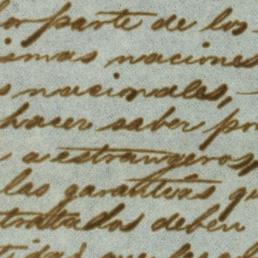 por parte de los
ismas naciones
s nacionales,
hacer saber por
a estrangeros,
las garantías qu
tratados deben